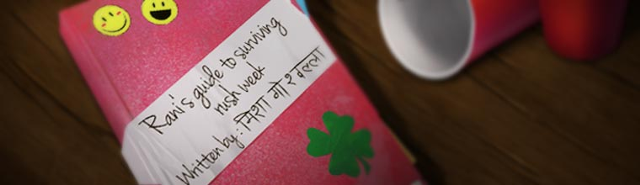 Rani's guide to surviving
rush week
Written by: मिशा